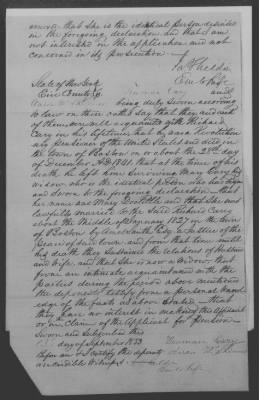 answer that she is the identical person described
in the foregoing declaration and that I am
not interested in the application and not
concerned in its prosecution.
State of New York
Erie County
and
being duly sworn according
to law on their oath say that they and each
of them were well acquainted with Richard
Cary in his lifetime that he was a Revolution
ary Pensioner of the United States and died in
the town of Boston on or about the 28th day
of December A.D. 1841. that at the time of his
death he left him surviving Mary Cary his
widow who is the identical person who has signed
and sworn to the foregoing declaration, that
her name was Mary Doolittle and that she was
lawfully married to the said Richard Cary
about the Middle of January 1827 in the town
of Boston by
Peace of said town and from that time until
his death they sustained the relations of Husband
and Wife, and that she is now a Widow, that
from an intimate acquaintance with the
parties during the period above mentioned
the deponents testify from a personal knowl
edge of the facts as above stated — that
they have no interest in making this affidavit
or in claim of the applicant for pension
Sworn and subscribed this
day of September 1853
Before me and I certify the deponents
are credible witnesses
Truman Cary